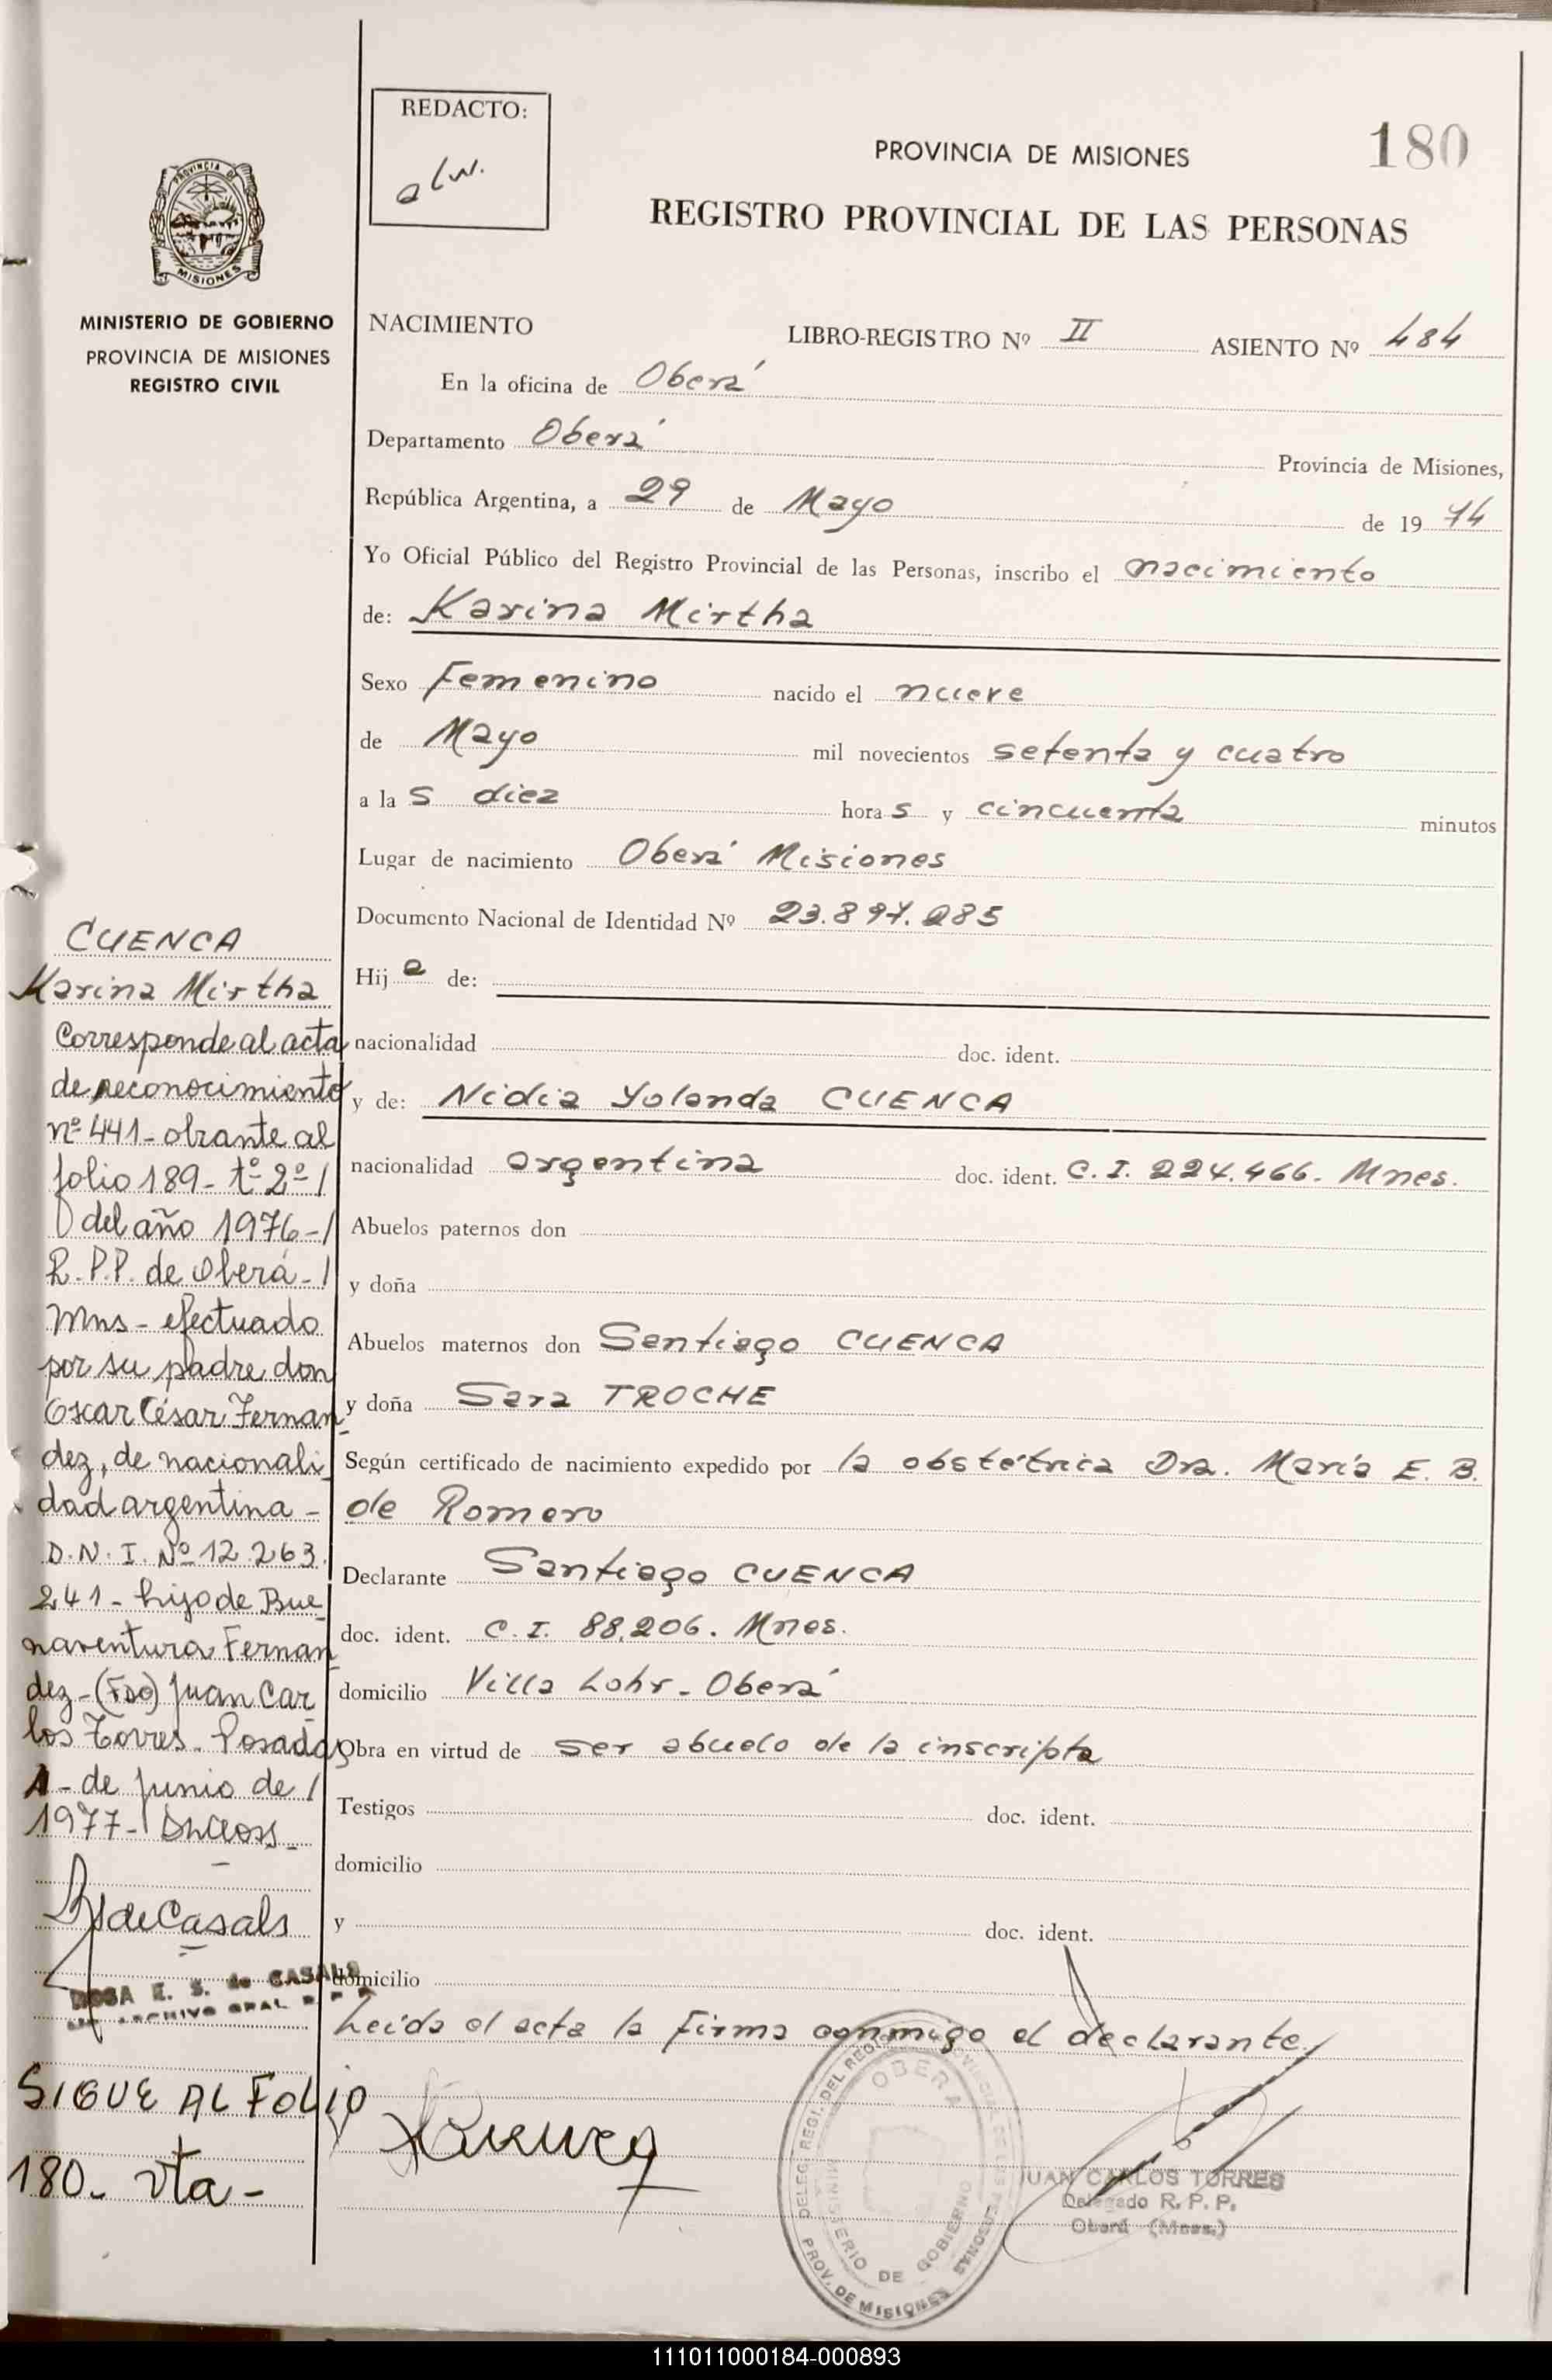 REDACTO:
180
PROVINCIA DE MISIONES
REGISTRO PROVINCIAL DE LAS PERSONAS
PROVINCIA DE
MISIONES
MINISTERIO DE GOBIERNO
PROVINCIA DE MISIONES
REGISTRO CIVIL
NACIMIENTO LIBRO-REGISTRO Nº II ASIENTO Nº 484
En la oficina de Oberá
Departamento Oberá Provincia de Misiones,
República Argentina, a 29 de Mayo de 19 74
Yo Oficial Público del Registro Provincial de las Personas, inscribo el nacimiento
de: Karina Mirtha
Sexo Femenino nacido el nueve
de Mayo mil novecientos setenta y cuatro
a la s diez hora s y cincuenta minutos
Lugar de nacimiento Oberá Misiones
Documento Nacional de Identidad Nº 23.897.285
Hij a de:
nacionalidad doc. ident.
y de: Nidia Yolanda CUENCA
nacionalidad argentina doc. ident. C.I. 224.466. Mnes.
Abuelos paternos don
y doña
Abuelos maternos don Santiago CUENCA
y doña Sara TROCHE
Según certificado de nacimiento expedido por la obstétrica Dra. María E. B.
de Romero
Declarante Santiago CUENCA
doc. ident. C.I. 88.206. Mnes.
domicilio Villa Lohr - Oberá
Obra en virtud de ser abuelo de la inscripta
Testigos doc. ident.
domicilio
y doc. ident.
domicilio
Leída el acta la firma conmigo el declarante
CUENCA
Karina Mirtha
Corresponde al acta
de reconocimiento
nº 441 - obrante al
folio 189 - tº 2º /
del año 1976 - /
R.P.P. de Oberá - /
Mns - efectuado
por su padre don
Oscar César Fernan
dez, de nacionali
dad argentina -
D.N.I. Nº 12.263.
241 - hijo de Bue
naventura Fernan
dez - (Fdo) Juan Car
los Torres - Posadas
1 - de Junio de /
1977 -
de Casals
ROSA E. S. de CASALS
ARCHIVO GRAL R P P
SIGUE AL FOLIO
180 - vta -
Cuenca
DELEG. REGI. DEL REGISTRO PROVINCIAL DE LAS PERSONAS
OBERA
MINISTERIO DE GOBIERNO
PROV. DE MISIONES
JUAN CARLOS TORRES
Delegado R. P. P.
Oberá (Mnes.)
111011000184-000893